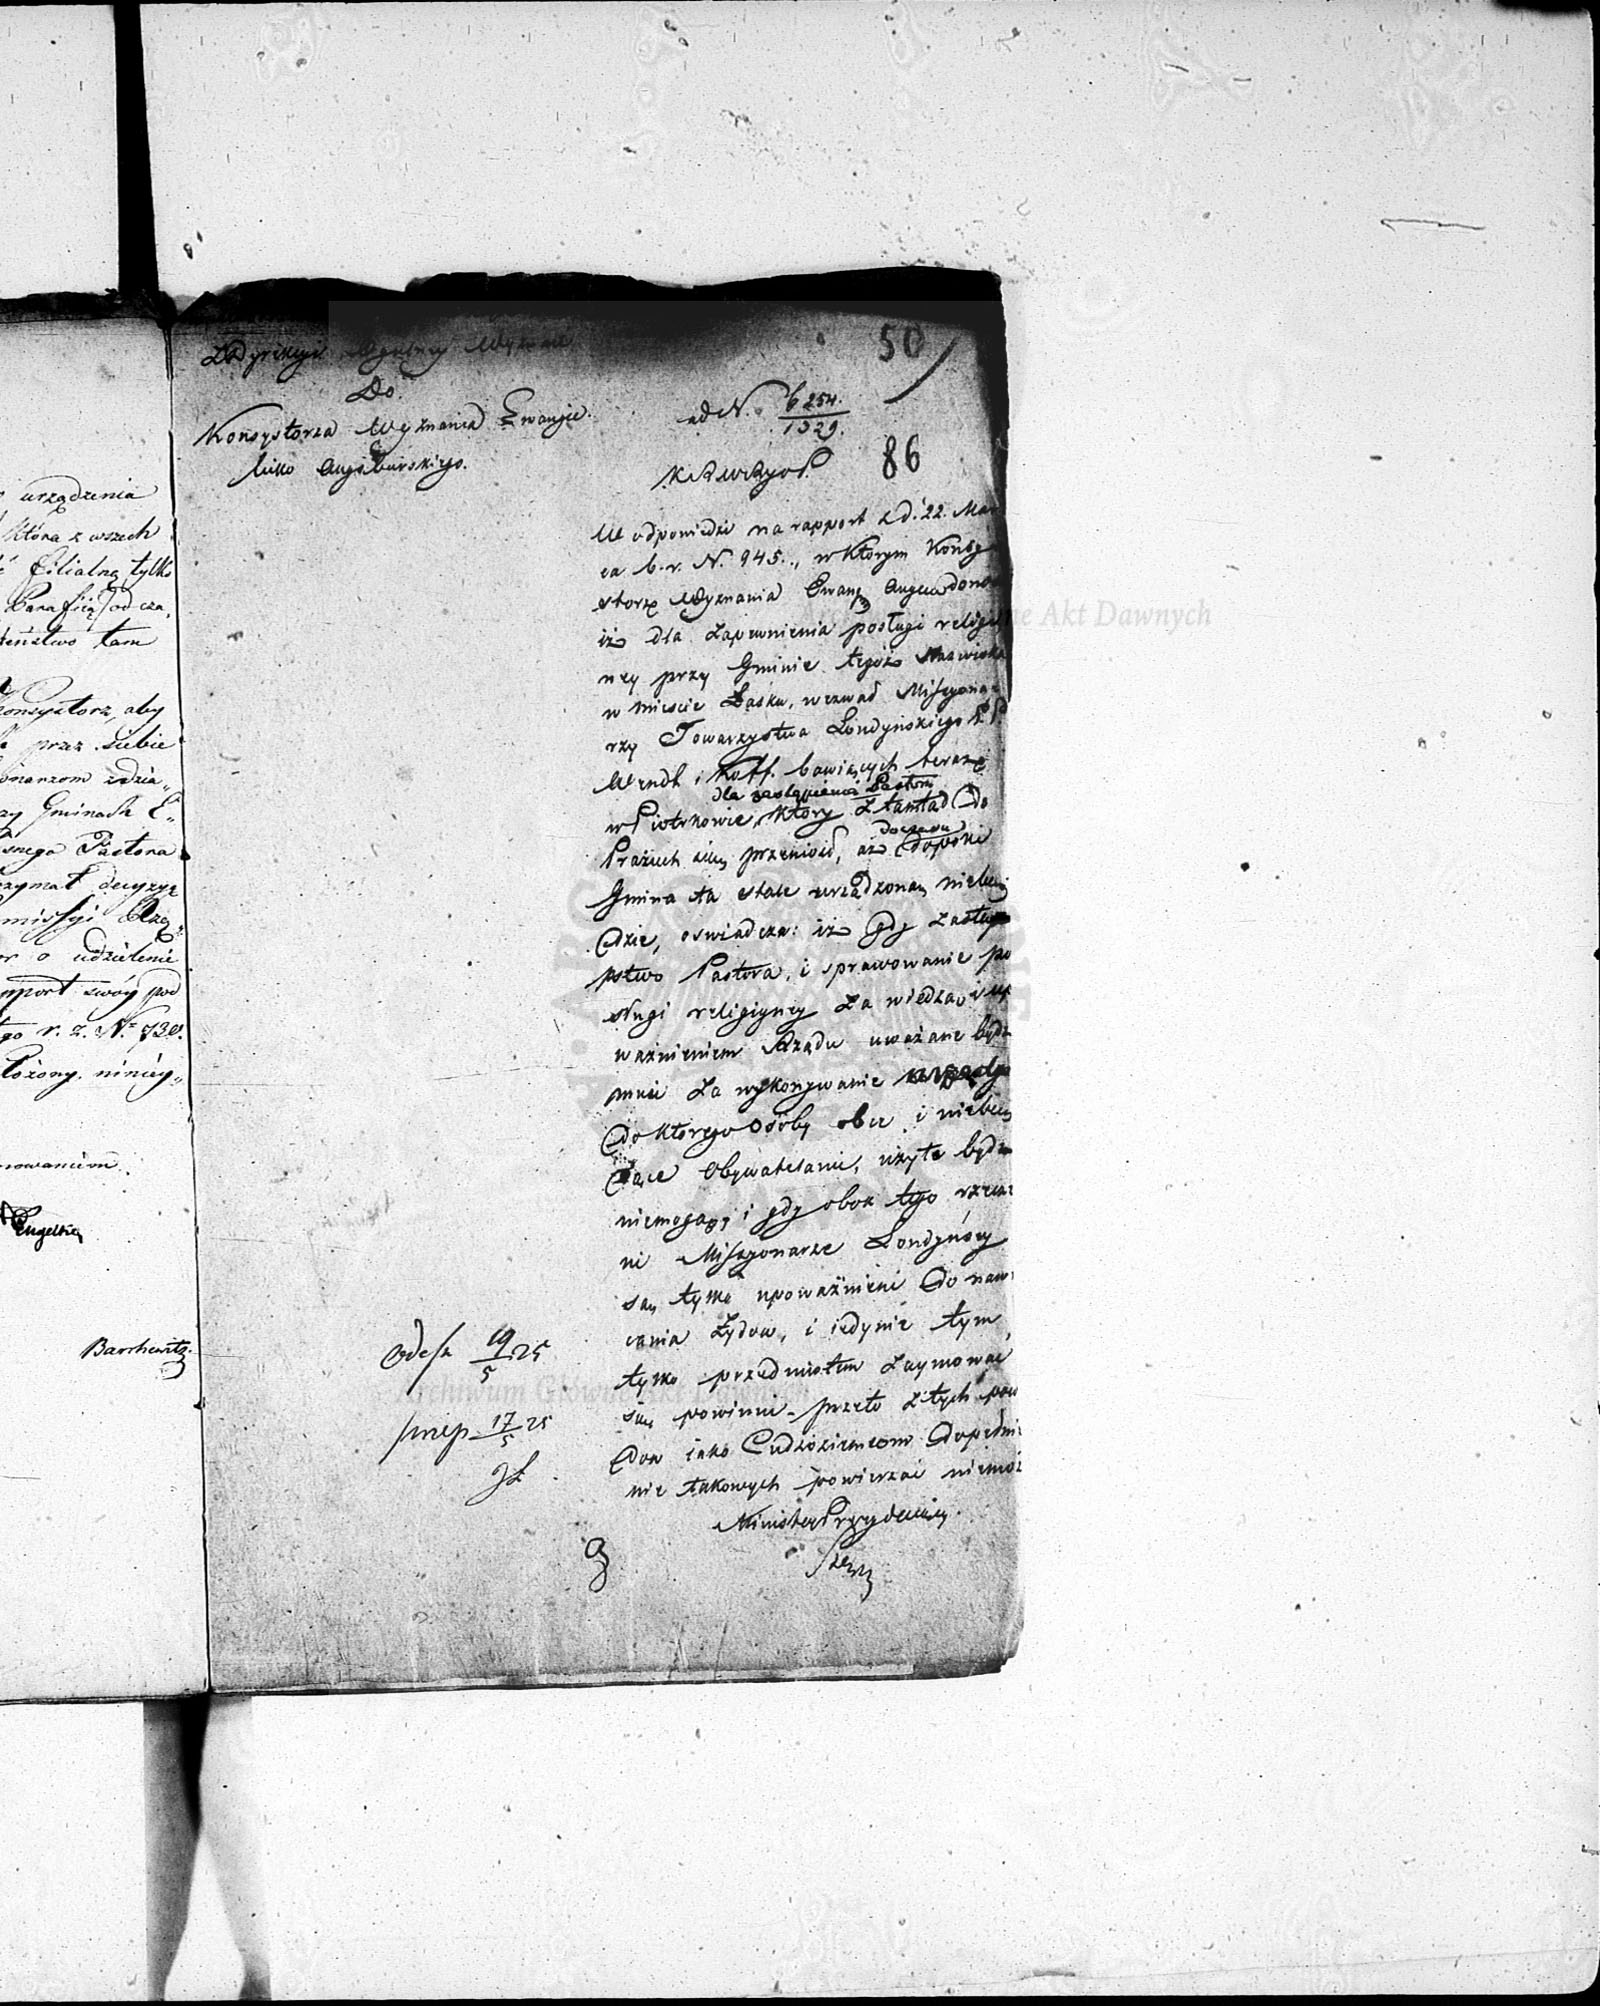 urządzenia
która z wszech
Filialną tylko
Parafią od cza„
żeństwo tam
Konsystorz, aby
przez siebie
onarzom zdzia„
zy Gminach E„
snego Pastora
rzymał decyzyę
missyi Rzą„
or o udzielenie
pport swóy pod
go r. z. Nº 730.
łożony. niniey„
nowaniem.
Engelke
Barchewitz.
50
Z Dyrekcyi Wyznań
Do
Konsystorza Wyznania Ewangie.
licko Augsburskiego.
ad N. 6254.
1329.
86
K R W R y O P
W odpowiedzi na rapport z d. 22. Mar
ca b. r. N. 945., w którym Konsy
storz Wyznania Ewang Augsb donosi
iż dla zapewnienia posługi religiy
ney przy Gminie tegoż Nazwiska
w mieście Łasku, wezwał Missyona
rzy Towarzystwa Londyńskiego P. P.
Wendt i Hoff. bawiących teraz
dla zastąpienia Pastora
w Piotrkowie, który ztamtąd do
doczasu
Prażuch się przeniósł, aż dopóki
Gmina ta stale urządzoną niebę
dzie, oświadcza: iż gdy zastę
pstwo Pastora, i sprawowanie po
sługi religiyney za wiedzą i up
ważnieniem Rządu uważane być
musi za wykonywanie urzędu
do którego osoby obce i niebę
dące Obywatelami, użyte być
niemogą, i gdy obok tego rzecze
ni Missyonarze Londyńscy
są tylko upoważnieni do nawr
cania Żydów, i iedynie tym
tylko przedmiotem zaymować
się powinni – przeto z tych powo
dów iako Cudzoziemcom dopełnie
nie takowych powierzać niemoż
Minister Prezyduiący.
Odesz 19/5 25
/mep 17/5 25